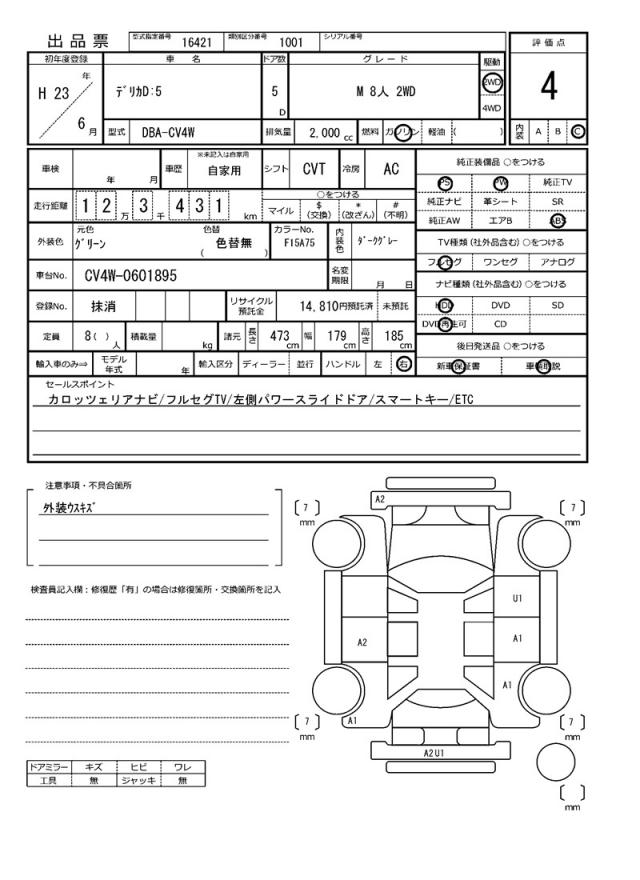 出品票 型式指定番号 16421 類別区分番号 1001 シリアル番号
評価点
初年度登録 車名 ドア数 グレード 駆動
H 23 年 6 月 デリカD:5 5 D M 8人 2WD 2WD 4WD 4
型式 DBA-CV4W 排気量 2,000 cc 燃料 ガソリン 軽油 ( ) 内装 A B C
車検 年 月 車歴 ※未記入は自家用 自家用 シフト CVT 冷房 AC
純正装備品 ○をつける
PS PW 純正TV
純正ナビ 革シート SR
純正AW エアB ABS
走行距離 1 2 万 3 千 4 3 1 km ○をつける マイル $ (交換) * (改ざん) # (不明)
外装色 元色 グリーン 色替 ( 色替無 ) カラーNo. F15A75 内装色 ダークグレー
TV種類(社外品含む)○をつける
フルセグ ワンセグ アナログ
車台No. CV4W-0601895 名変期限 月 日
ナビ種類(社外品含む)○をつける
HDD DVD SD
DVD再生可 CD
登録No. 抹消 リサイクル預託金 14,810円預託済 未預託
定員 8( ) 人 積載量 kg 諸元 長さ 473 cm 幅 179 cm 高さ 185 cm
後日発送品 ○をつける
新車保証書 車輌取説
輸入車のみ⇒ モデル年式 年 輸入区分 ディーラー 並行 ハンドル 左 右
セールスポイント
カロッツェリアナビ/フルセグTV/左側パワースライドドア/スマートキー/ETC
注意事項・不具合箇所
外装ウスキズ
検査員記入欄：修復歴「有」の場合は修復箇所・交換箇所を記入
ドアミラー キズ ヒビ ワレ
工具 無 ジャッキ 無
A2
〔 7 〕 mm
〔 7 〕 mm
U1
A2
A1
A1
A1
〔 7 〕 mm
〔 7 〕 mm
A2U1
〔 〕 mm